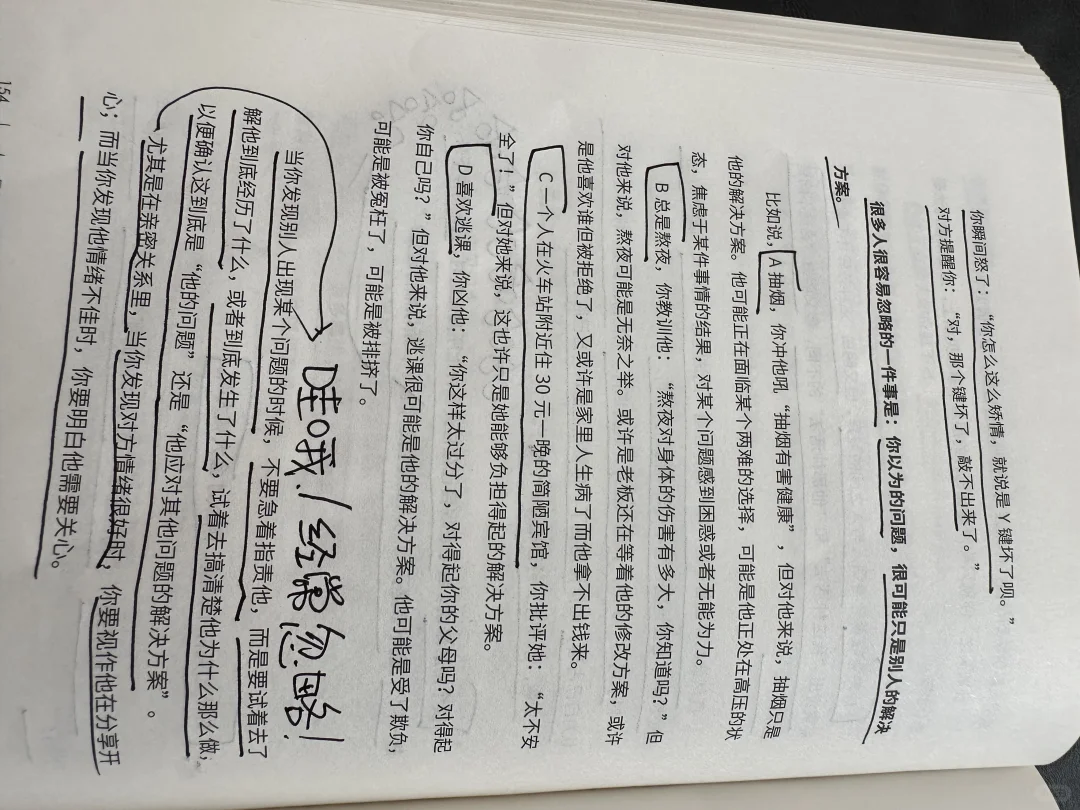 你瞬间怒了：“你怎么这么矫情，就说是 Y 键坏了呗。”
对方提醒你：“对，那个键坏了，敲不出来了。”
很多人很容易忽略的一件事是：你以为的问题，很可能只是别人的解决
方案。
比如说，A 抽烟，你冲他吼“抽烟有害健康”，但对他来说，抽烟只是
他的解决方案。他可能正在面临某个两难的选择，可能是他正处在高压的状
态，焦虑于某件事情的结果，对某个问题感到困惑或者无能为力。
B 总是熬夜，你教训他：“熬夜对身体的伤害有多大，你知道吗？”但
对他来说，熬夜可能是无奈之举。或许是老板还在等着他的修改方案，或许
是他喜欢谁但被拒绝了，又或许是家里人生病了而他拿不出钱来。
C 一个人在火车站附近住 30 元一晚的简陋宾馆，你批评她：“太不安
全了！”但对她来说，这也许只是她能够负担得起的解决方案。
D 喜欢逃课，你凶他：“你这样太过分了，对得起你的父母吗？对得起
你自己吗？”但对他来说，逃课很可能是他的解决方案。他可能是受了欺负，
可能是被冤枉了，可能是被排挤了。
哇哦！经常忽略！
当你发现别人出现某个问题的时候，不要急着指责他，而是要试着去了
解他到底经历了什么，或者到底发生了什么，试着去搞清楚他为什么那么做，
以便确认这到底是“他的问题”还是“他应对其他问题的解决方案”。
尤其是在亲密关系里，当你发现对方情绪很好时，你要视作他在分享开
心；而当你发现他情绪不佳时，你要明白他需要关心。
154